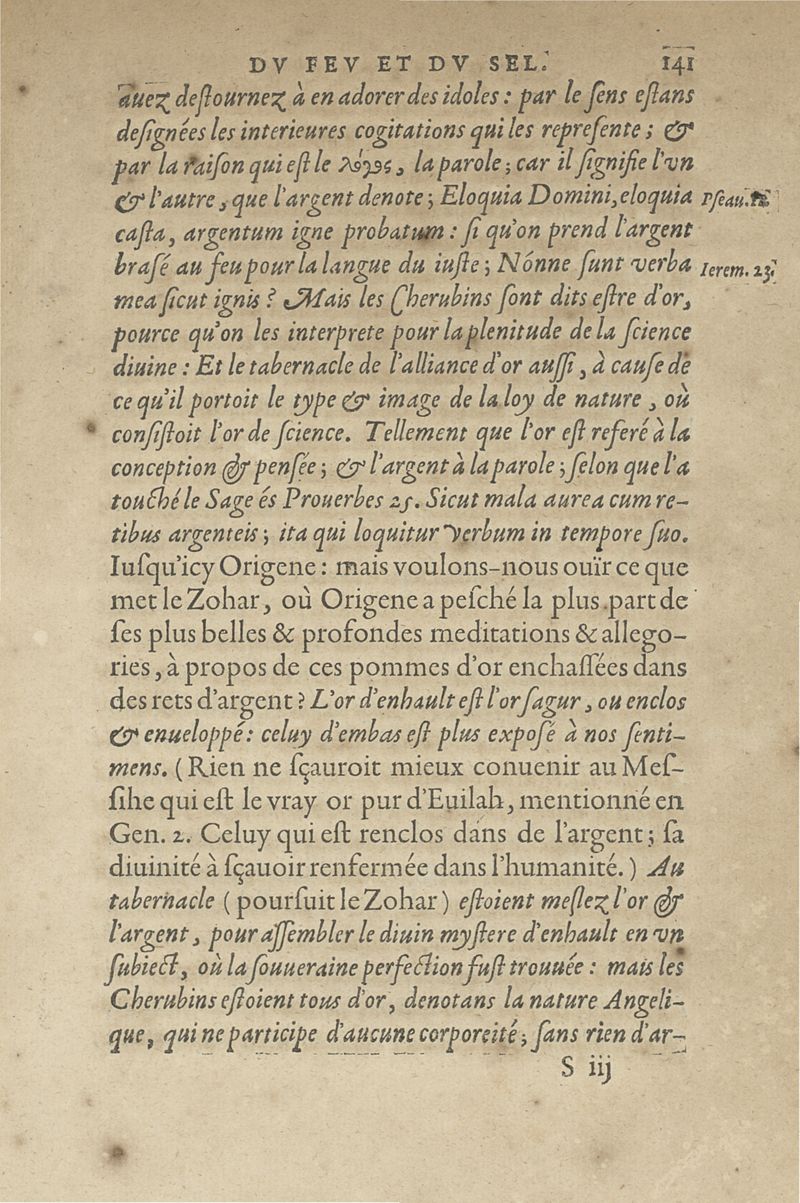 DV FEV ET DV SEL. 141
auez destournez à en adorer des idoles : par le sens estans
designées les interieures cogitations qui les represente ; &
par la raison qui est le λόγος, la parole ; car il signifie l'vn
& l'autre, que l'argent denote ; Eloquia Domini, eloquia
Pseau.
casta, argentum igne probatum : si qu'on prend l'argent
brasé au feu pour la langue du iuste ; Nónne sunt verba
Ierem. 23.
mea sicut ignis ? Mais les Cherubins sont dits estre d'or,
pource qu'on les interprete pour la plenitude de la science
diuine : Et le tabernacle de l'alliance d'or aussi, à cause de
ce qu'il portoit le type & image de la loy de nature, où
consistoit l'or de science. Tellement que l'or est referé à la
conception & pensée ; & l'argent à la parole ; selon que l'a
touché le Sage és Prouerbes 25. Sicut mala aurea cum re-
tibus argenteis ; ita qui loquitur verbum in tempore suo.
Iusqu'icy Origene : mais voulons-nous ouïr ce que
met le Zohar, où Origene a pesché la plus part de
ses plus belles & profondes meditations & allego-
ries, à propos de ces pommes d'or enchassées dans
des rets d'argent ? L'or d'enhault est l'or sagur, ou enclos
& enueloppé : celuy d'embas est plus exposé à nos senti-
mens. (Rien ne sçauroit mieux conuenir au Mes-
sihe qui est le vray or pur d'Euilah, mentionné en
Gen. 2. Celuy qui est renclos dans de l'argent ; sa
diuinité à sçauoir renfermée dans l'humanité.) Au
tabernacle (poursuit le Zohar) estoient meslez l'or &
l'argent, pour assembler le diuin mystere d'enhault en vn
subiect, où la souueraine perfection fust trouuée : mais les
Cherubins estoient tous d'or, denotans la nature Angeli-
que, qui ne participe d'aucune corporeité ; sans rien d'ar-
S iij